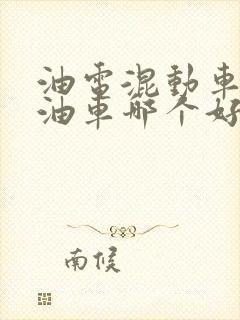 油電混動車
油車哪个好
南候